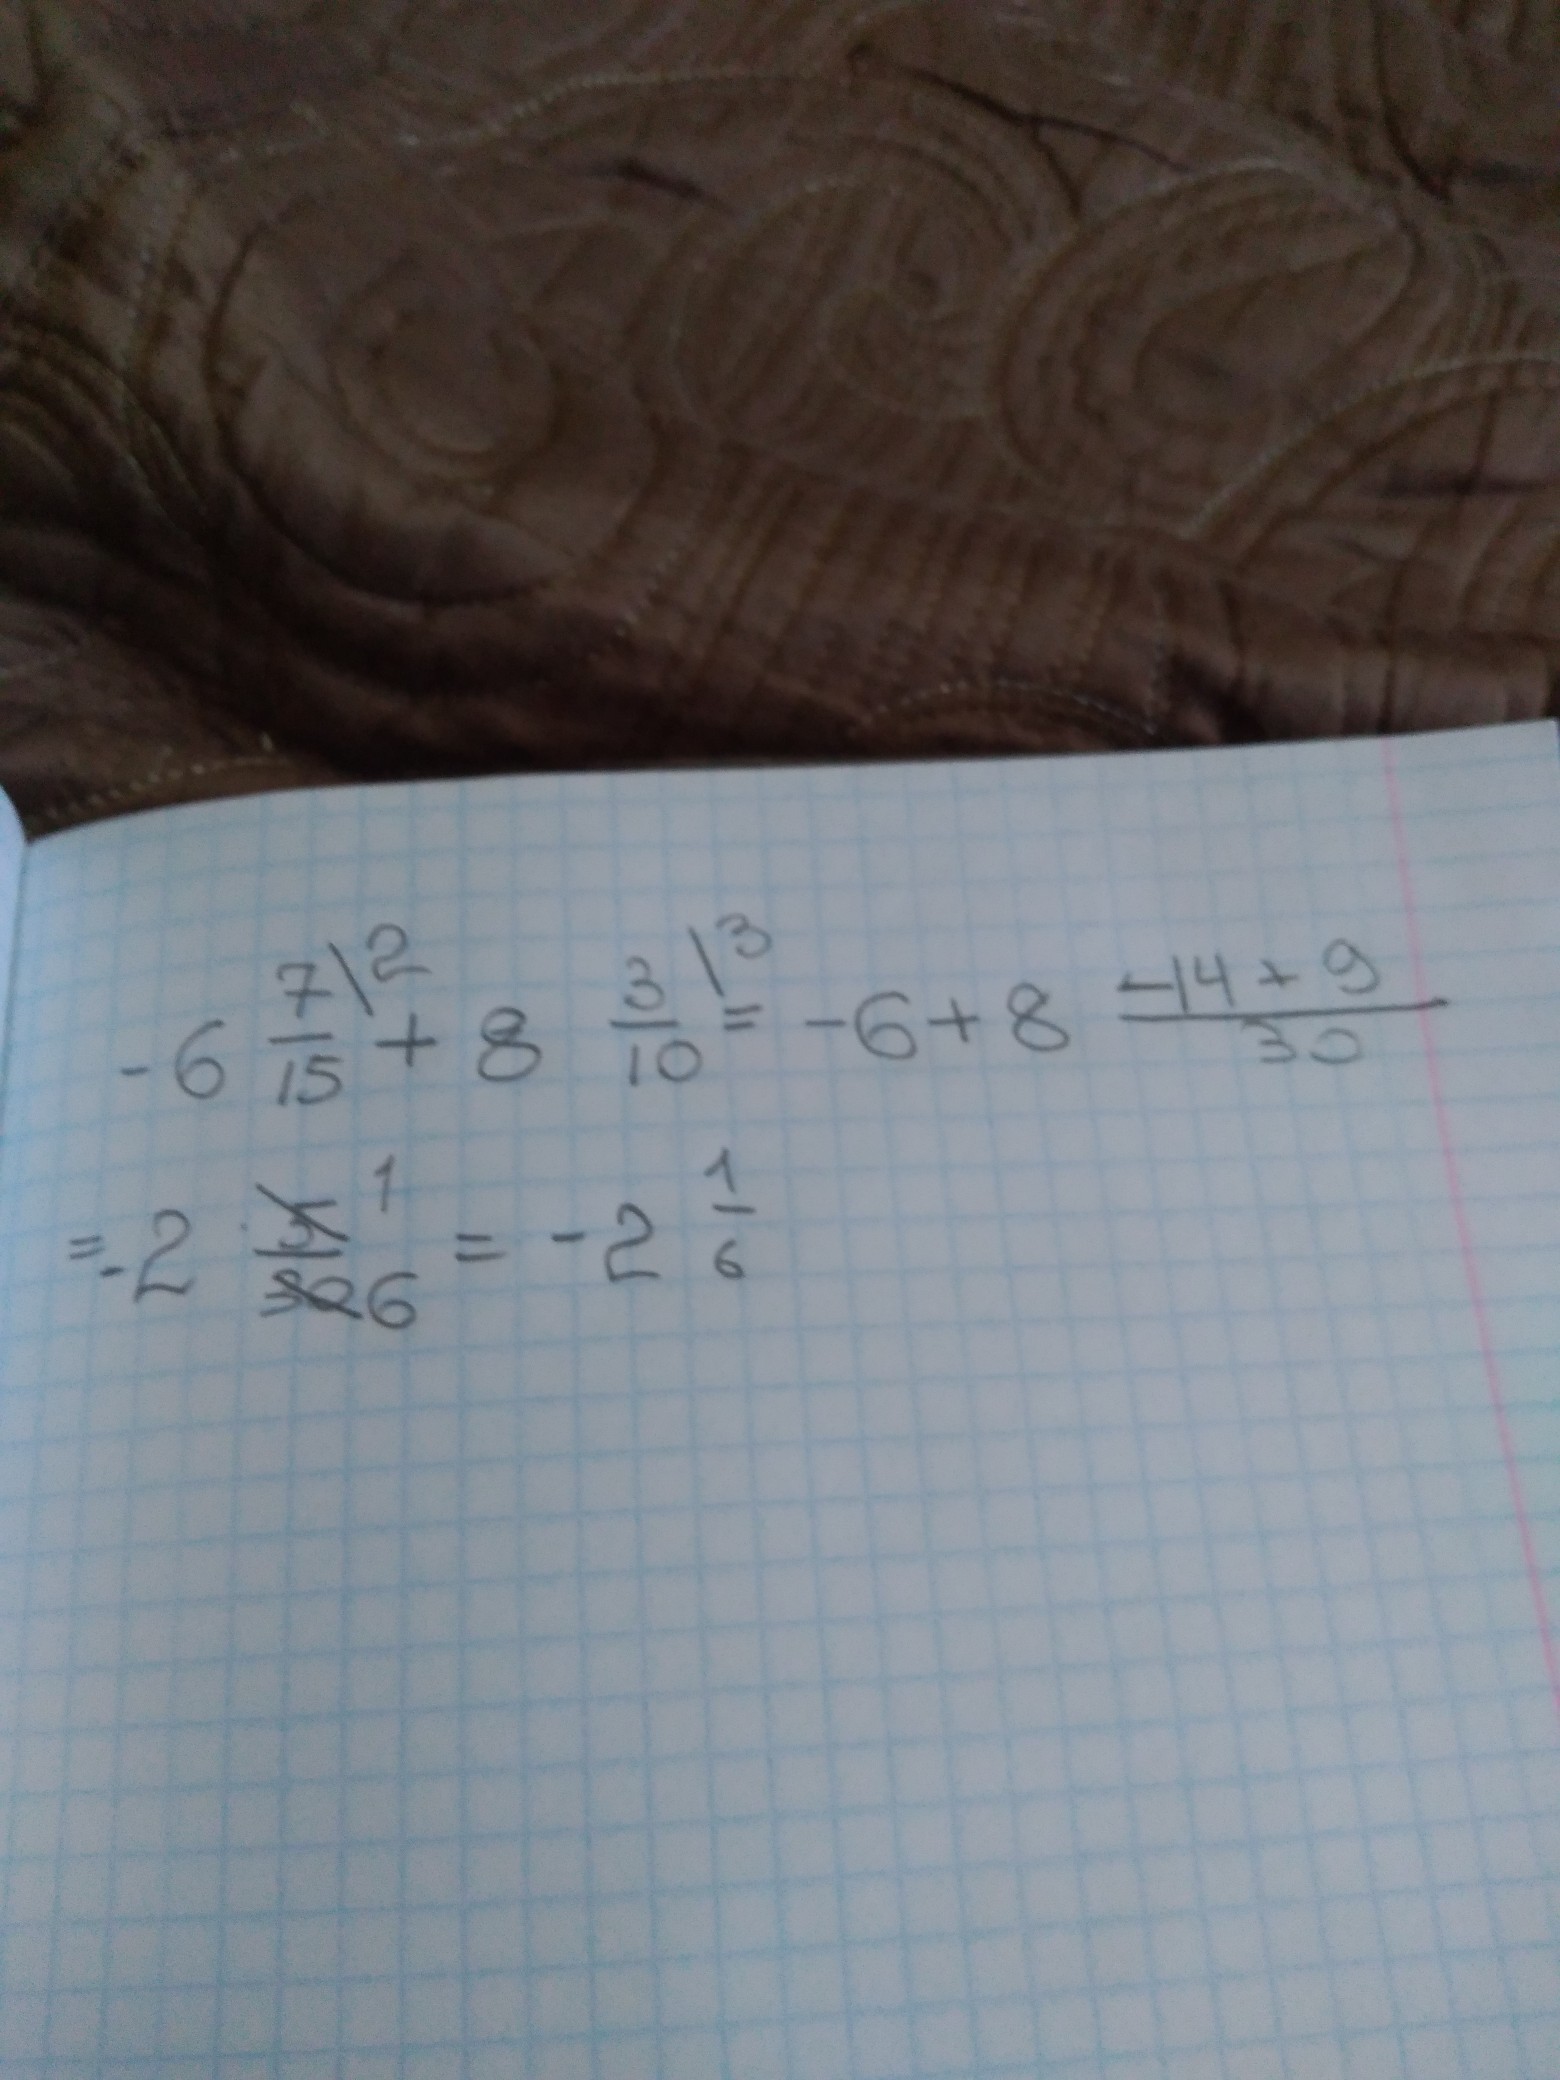 -6 7/15 \2 + 8 3/10 \3 = -6+8 -14+9/30
=-2 5/30 1 6 = -2 1/6